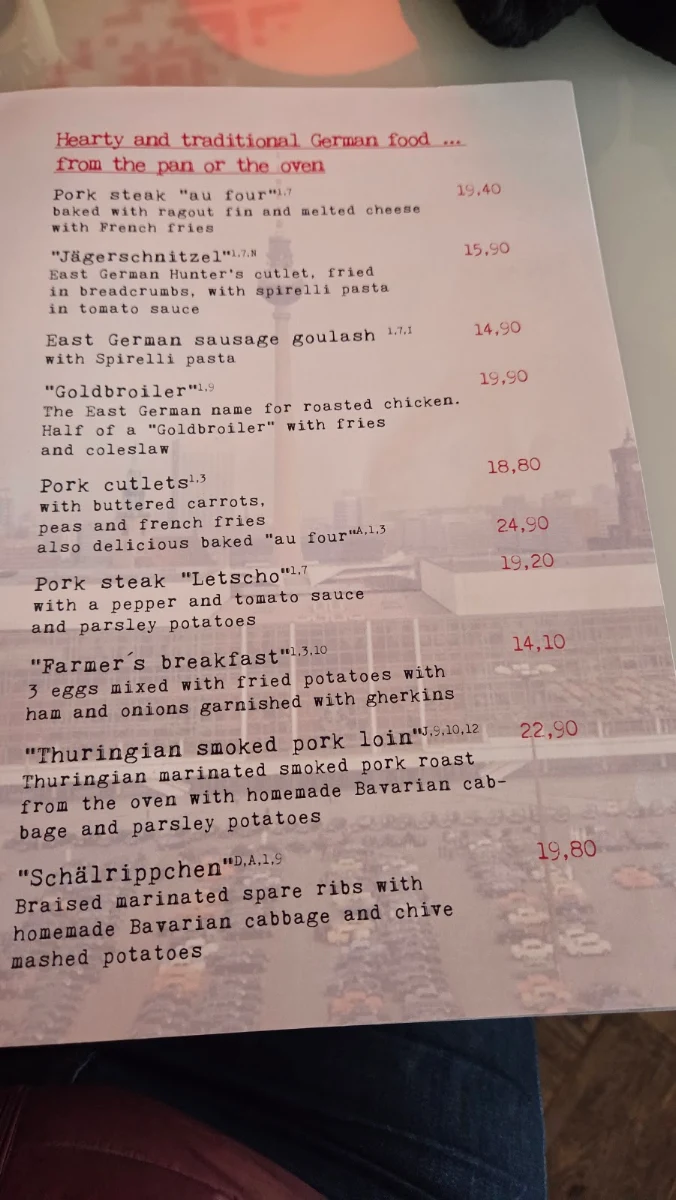 Hearty and traditional German food ...
from the pan or the oven
Pork steak "au four"1,7 19,40
baked with ragout fin and melted cheese
with French fries
"Jägerschnitzel"1,7,N 15,90
East German Hunter's cutlet, fried
in breadcrumbs, with spirelli pasta
in tomato sauce
East German sausage goulash 1,7,I 14,90
with Spirelli pasta
"Goldbroiler"1,9 19,90
The East German name for roasted chicken.
Half of a "Goldbroiler" with fries
and coleslaw
Pork cutlets1,3 18,80
with buttered carrots,
peas and french fries
also delicious baked "au four"A,1,3 24,90
Pork steak "Letscho"1,7 19,20
with a pepper and tomato sauce
and parsley potatoes
"Farmer´s breakfast"1,3,10 14,10
3 eggs mixed with fried potatoes with
ham and onions garnished with gherkins
"Thuringian smoked pork loin"J,9,10,12 22,90
Thuringian marinated smoked pork roast
from the oven with homemade Bavarian cab-
bage and parsley potatoes
"Schälrippchen"D,A,1,9 19,80
Braised marinated spare ribs with
homemade Bavarian cabbage and chive
mashed potatoes